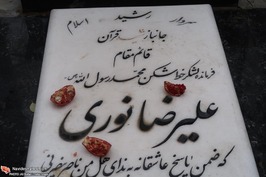 سردار رشید اسلام
جانباز قرآن
قائم مقام
فرمانده لشکر خط شکن محمد رسول الله
علیرضا نوری
که ضمن پاسخ عاشقانه به ندای هل من ناصر